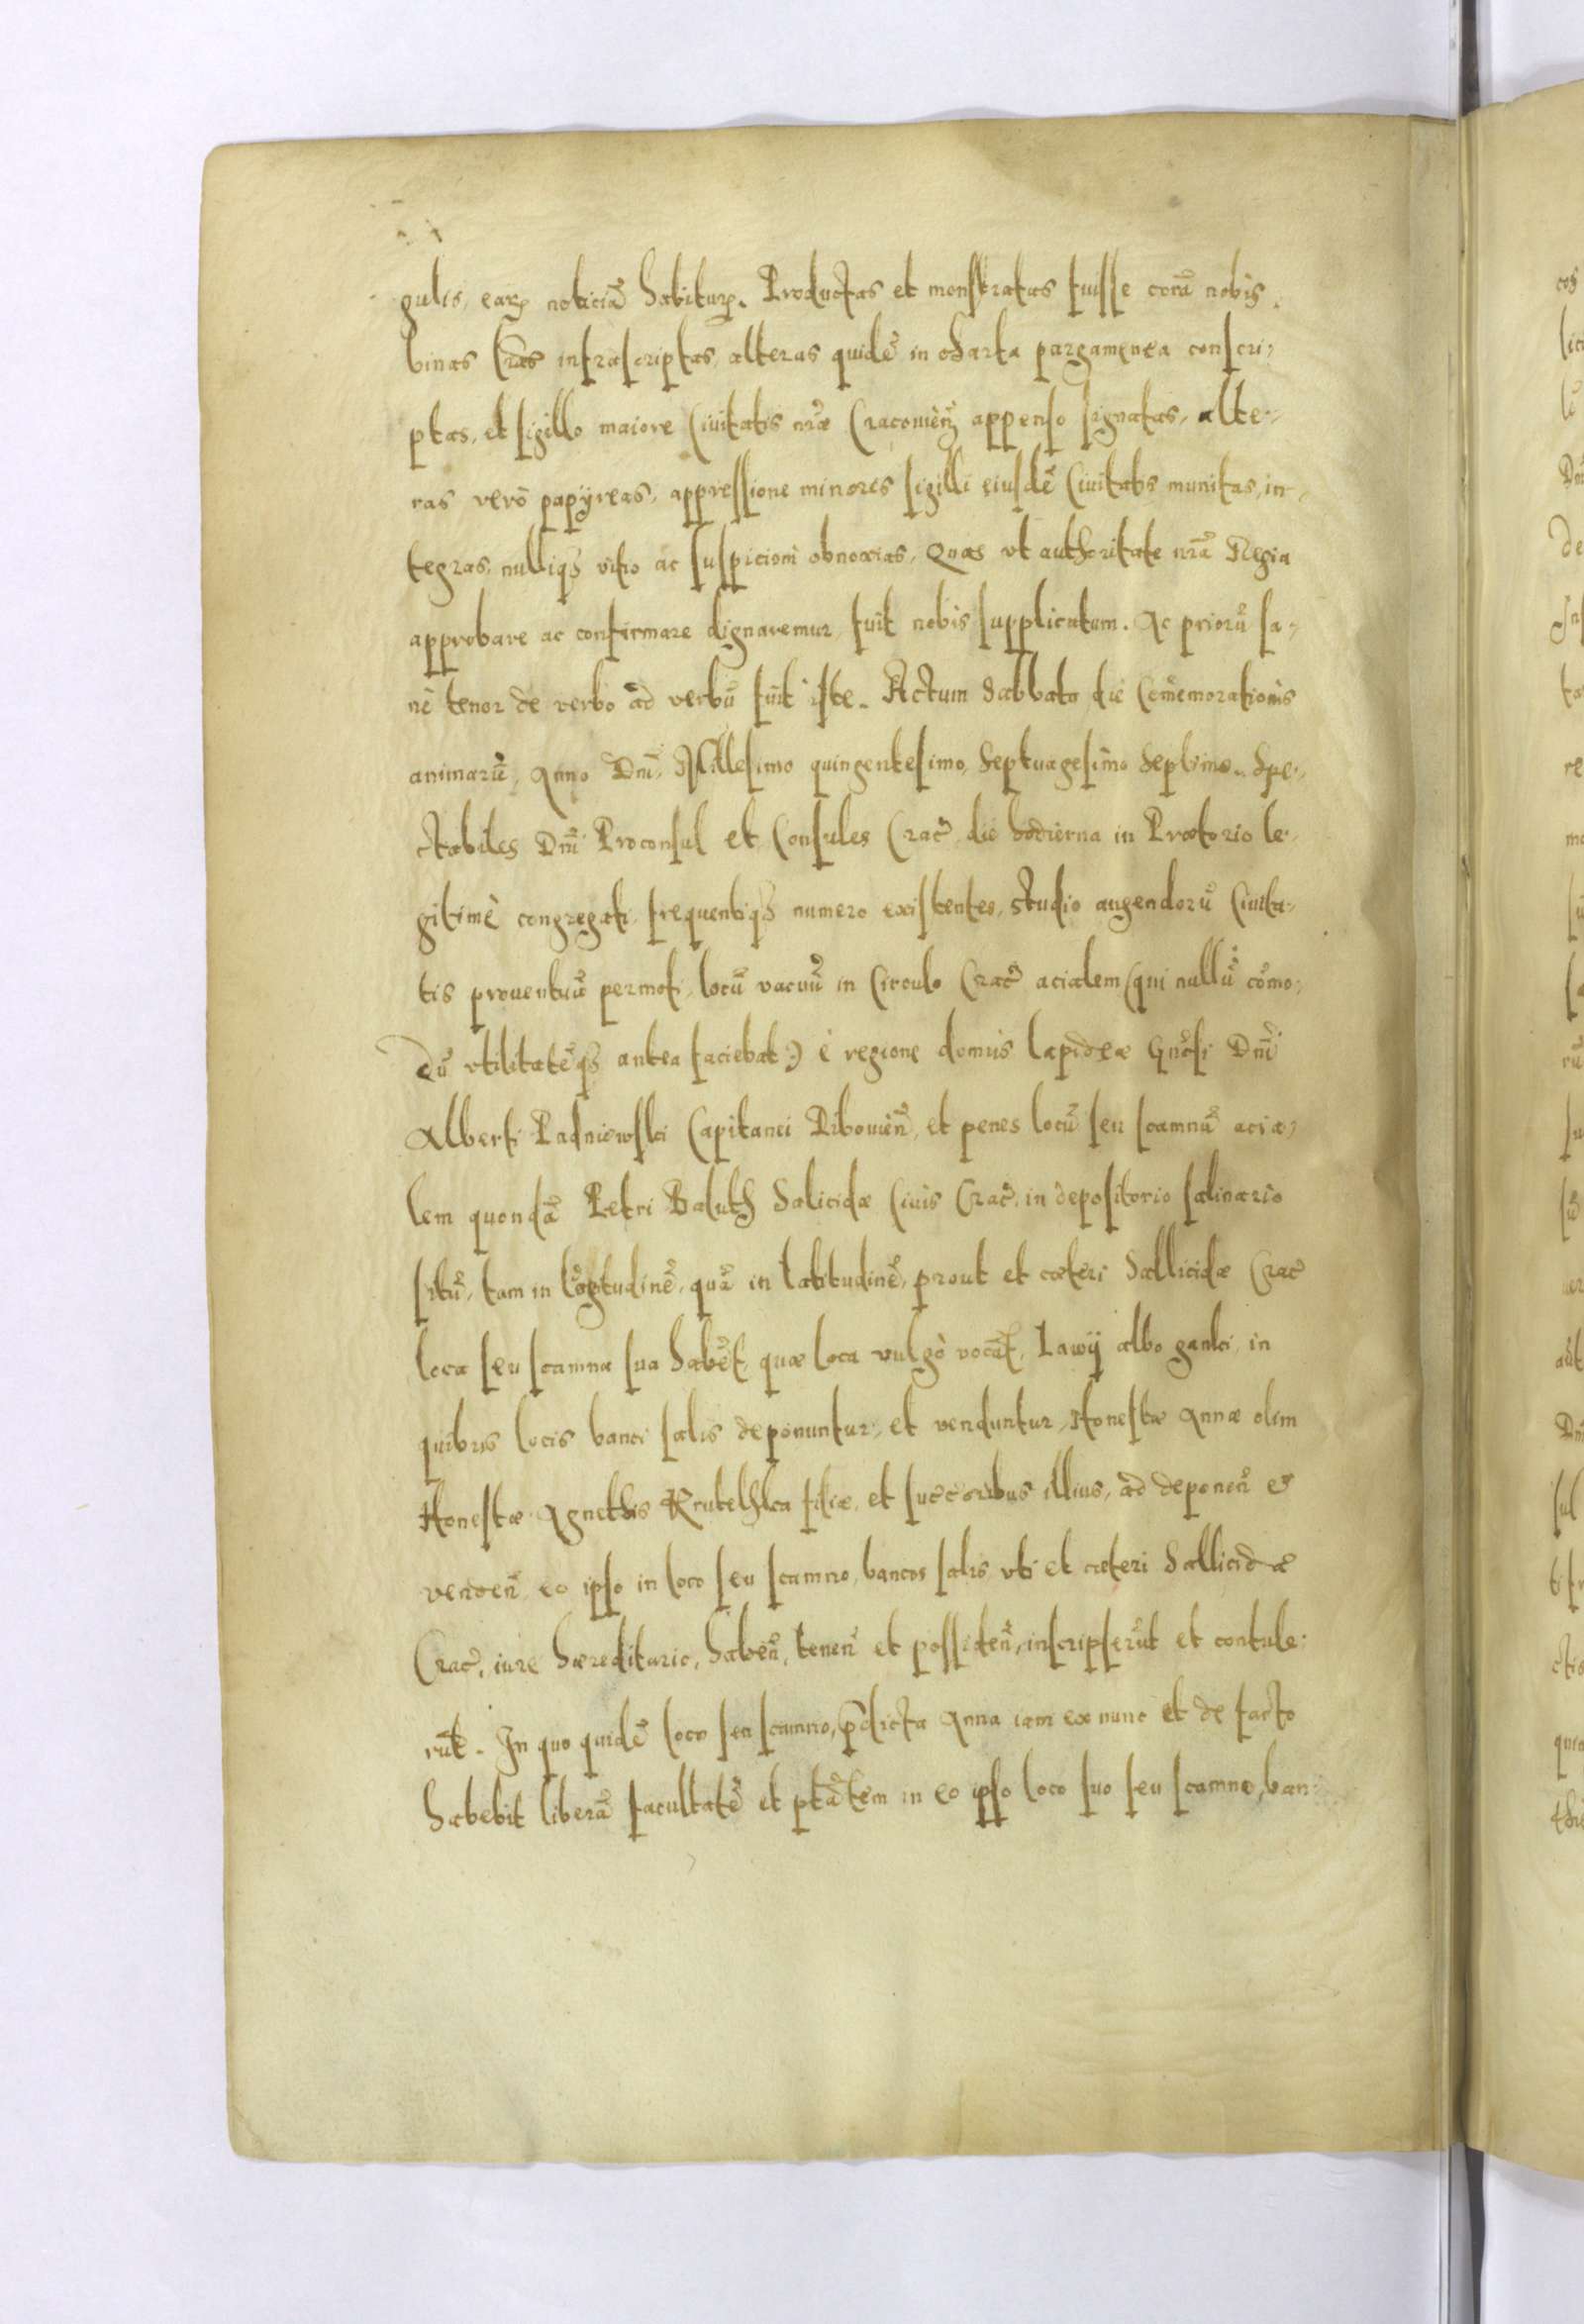 gulis, earꝝ noticiā habiturꝝ. Productas et monstratas fuisse corā nobis
binas l̄ras infrascriptas, alteras quidē in charta pargamenea conscri-
ptas, et sigillo maiore Ciuitatis nr̄æ Cracouień appenso signatas, alte-
ras verò papÿreas, appressione minores sigilli eiusdē Ciuitatis munitas, in-
tegras, nulliqꝫ vitio ac suspicioni obnoxias, Quas vt authoritate nr̄a Regia
approbare ac confirmare dignaremur, fuit nobis supplicatum. Ac priorū sa-
nè tenor de verbo ad verbū fuit iste. Actum Sabbato die Com̄emorationis
animarū, Anno Dni, Millesimo quingentesimo, Septuagesimo Septimo. Spe-
ctabiles Dni Proconsul et Consules Crac̄. die hodierna in Prætorio le-
gitimè congregati, frequentiqꝫ numero existentes, studio augendorū Ciuita-
tis prouentuū permoti, locū vacuū in Circulo Crac̄ acialem (qui nullū cōmo-
dū vtilitatēqꝫ antea faciebat) è regione domus lapideæ Gn̄osi Dni
Alberti Padniewski Capitanei Dibouień, et penes locū seu scamnū acia-
lem quondā Petri Baluth Salicidæ Ciuis Crac̄. in depositorio salinario
sitū, tam in lōgitudinē, quā in latitudinē, prout et cæteri Sallicidæ Crac̄
loca seu scamna sua habēt, quæ loca vulgò vocāt, Lawÿ albo ganki, in
quibus locis banci salis deponuntur, et venduntur, Honestæ Annæ olim
Honestæ Agnethis Krutelhka filiæ, et succ̄oribus illius, ad deponeń et
vendeń eo ipso in loco seu scamno, bancos salis vti et cæteri Sallicidæ
Crac̄, iure hæreditario, habeń, teneń et possideń, inscripserūt et contule-
rūt. In quo quidē loco seu scamno, p̄dicta Anna iam ex nunc et de facto
habebit liberā facultatē et ptātem in eo ipso loco suo seu scamno, ban-